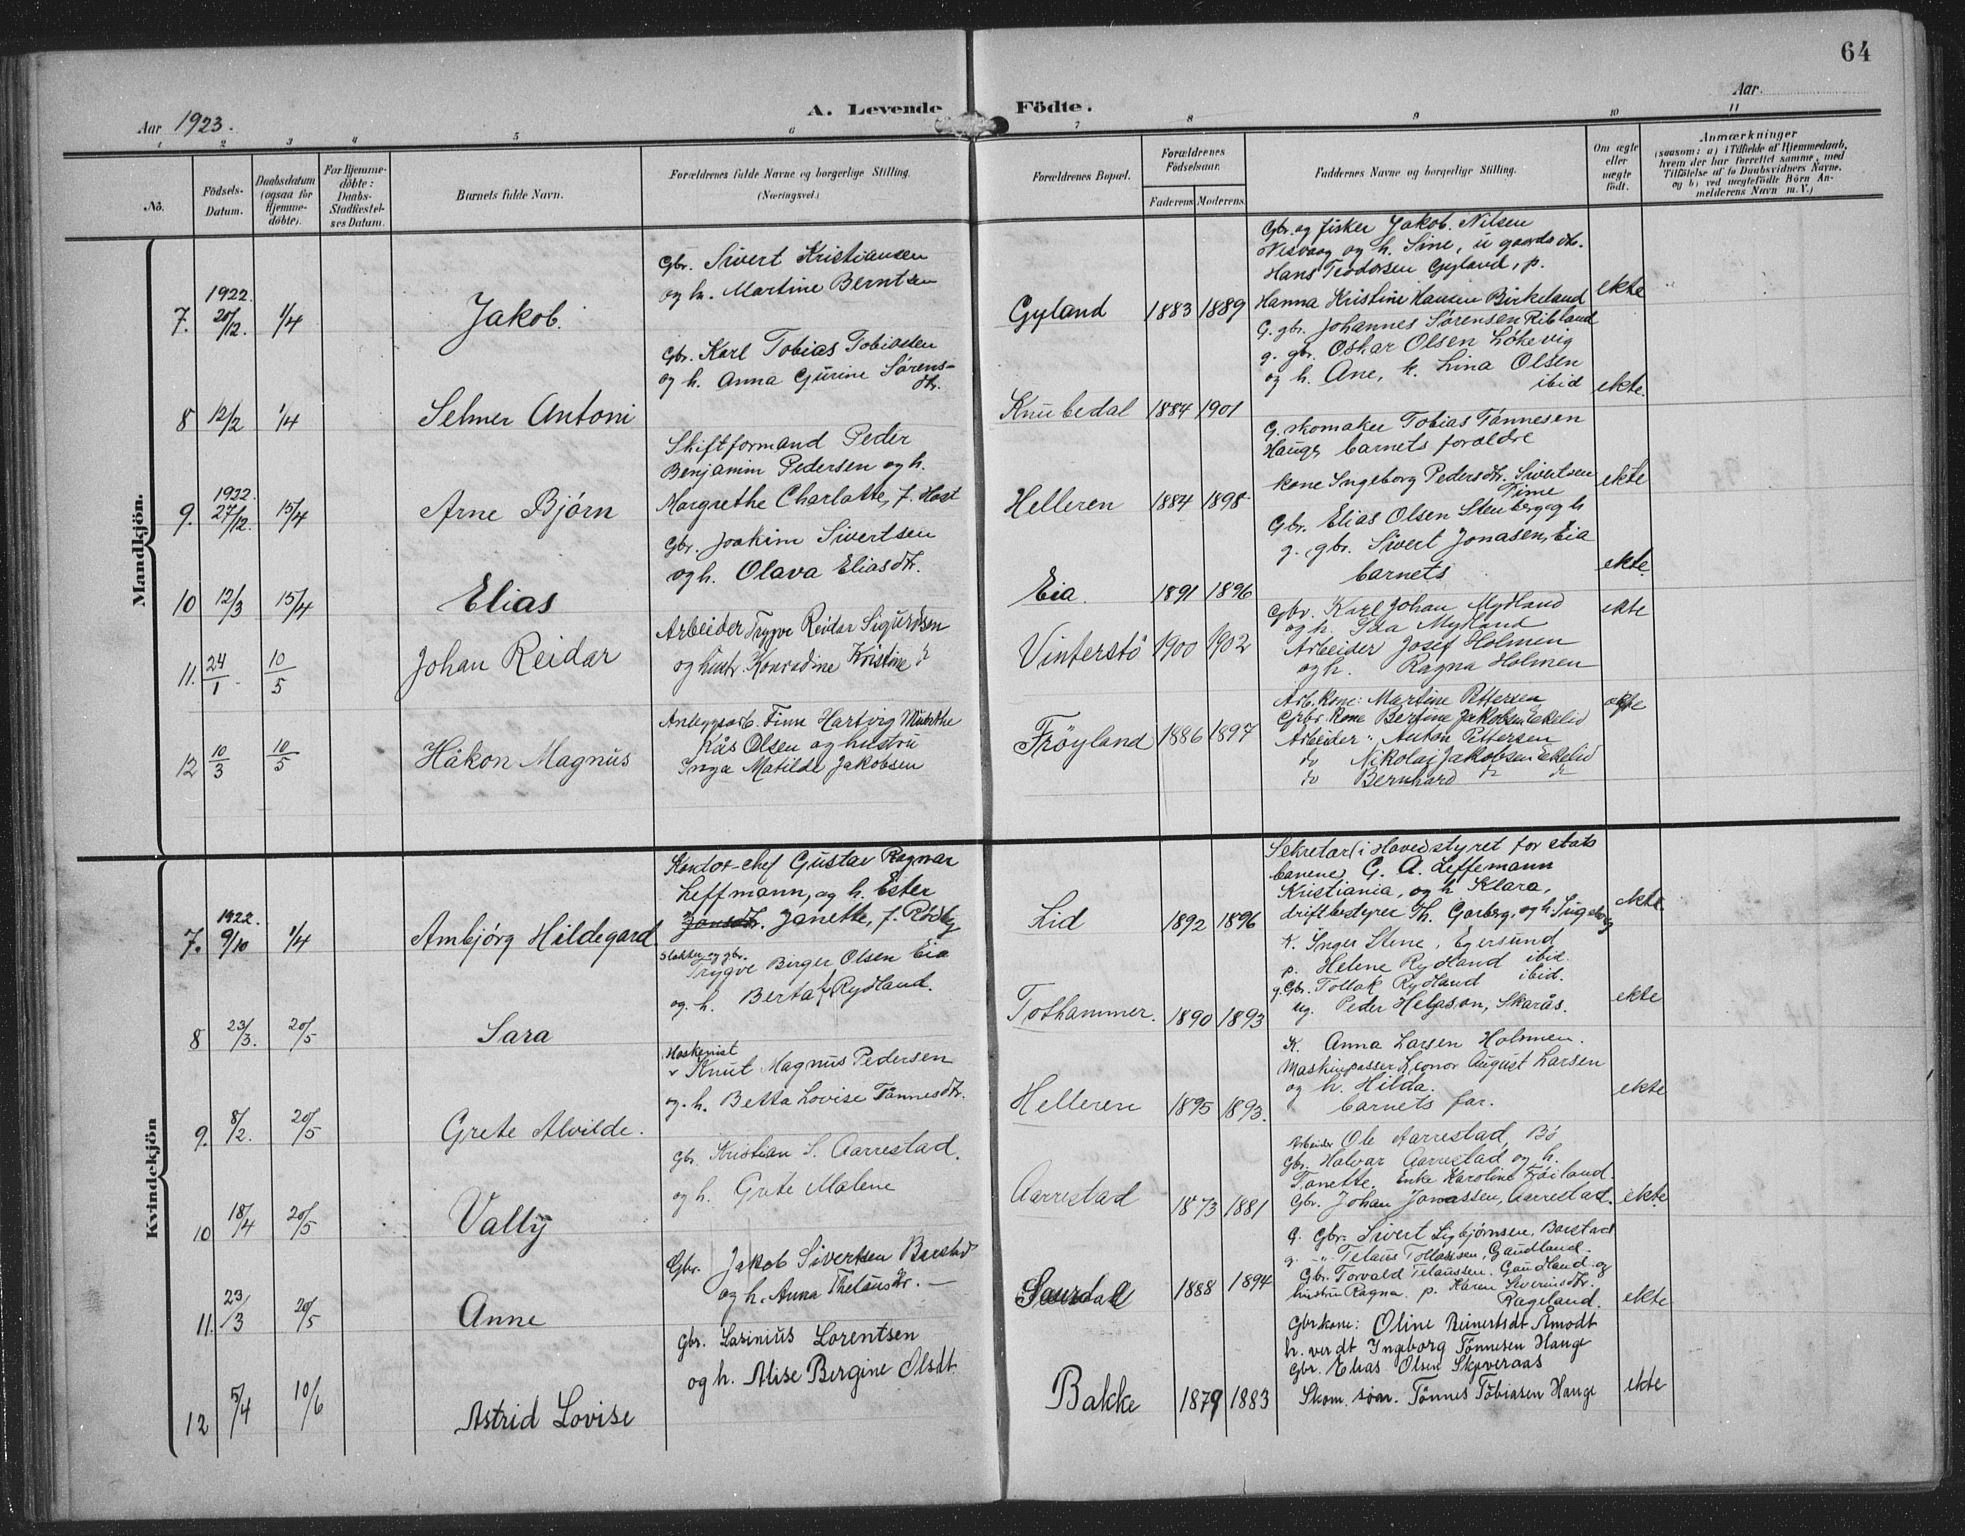 64
A. Levende Födte.
Aar 1923.
Aar
1 2 3 4 5 6 7 8 9 10 11
No.
Födsels-
Datum.
Daabsdatum
(ogsaa for
Hjemme-
döbte).
For Hjemme-
döbte:
Daabs-
Stadfæstel-
ses Datum.
Barnets fulde Navn.
Forældrenes fulde Navne og borgerlige Stilling.
(Næringsvei.)
Forældrenes Bopæl.
Forældrenes
Födselsaar.
Faderens Moderens
Faddernes Navne og borgerlige Stilling.
Om ægte
eller
uægte
födt.
Anmærkninger
(saasom: a) i Tilfælde af Hjemmedaab,
hvem der har forrettet samme, med
Tilföielse af to Daabsvidners Navne,
og b) ved uægtefödte Börn An-
melderens Navn m. V.)
Mandkjön.
7. 1922. 20/12. 1/4 Jakob.
Gbr. Sivert Kristiansen
og h. Martine Berntsen
Gyland 1883 1889
Gbr. og fisker Jakob Nilsen
Nesvaag og h. Sine, u gaardsdtr.
Hans Teodorsen Gyland, p.
Hanna Kristine Hansen Birkeland
ekte
8 12/2 1/4 Selmer Antoni
Gbr. Karl Tobias Tobiasen
og h. Anna Gurine Sørens-
dtr.
Knubedal 1884 1901
G. gbr. Johannes Sørensen Ribland
g. gbr. Oskar Olsen Løkevig
og h. Ane, k. Lina Olsen
ibid
ekte.
9. 1922. 27/12. 15/4 Arne Bjørn
Skiftformand Peder
Benjamin Pedersen og h.
Margrethe Charlotte, f. Høst
Helleren 1884 1898
G. skomaker Tobias Tønnesen
Hauge, barnets forældre
kone Ingeborg Pedersdtr. Sivertsen
Time
ekte
10 12/3 15/4 Elias
Gbr. Joakim Sivertsen
og h. Olava Eliasdtr.
Eia. 1891 1896
Gbr. Elias Olsen Stenberg og h
g. gbr. Sivert Jonasen, Eia
barnets
ekte.
11. 24/1 10/5 Johan Reidar
Arbeider Trygve Reidar Sigurdsen
og hustr. Konradine Kristine
Vinterstö 1900 1902
Gbr. Karl Johan Mydland
og h. Ida Mydland
Arbeider Josef Holmen
og h. Ragna Holmen
ekte
12 10/3 10/5 Håkon Magnus
Anleggsarb. Finn Hartvig
Kås Olsen og hustru
Inga Matilde Jakobsen
Fröyland 1886 1897
Arb. kone: Martine Pettersen
Gbr. Kone Bertine Jakobsen Ekelid
Arbeider Anton Pettersen
do Nikolai Jakobsen Ekelid
do Bernhard
ekte
Kvindekjön
7. 1922. 9/10 1/4 Ambjørg Hildegard
Kontor-chef Gustav Ragnar
Leffmann, og h. Ester
Janette, f. Rödby
Lid 1892 1896
Sekretær (i Hovedstyret for stats
banene) G. A. Leffemann
Kristiania, og h Klara,
driftbestyrer Th. Garberg, og h. Ingeborg
ekte
8 23/3. 20/5 Sara
Slakter og gbr.
Trygve Birger Olsen Eia
og h. Berta f. Rydland.
Tothammer. 1890 1893
K. Inger Stene, Egersund
p. Helene Rydland ibid.
g. Gbr. Tollak Rydland ibid.
ug. Peder Helgason, Skarås.
ekte
9. 8/2. 20/5 Grete Alvilde.
Maskinist
Knut Magnus Pedersen
og. h. Betta Lovise Tønnesdtr.
Helleren 1895 1893.
K. Anna Larsen Holmen.
Maskinpasser Leonor August Larsen
og h. Hilda.
barnets far.
ekte
10 18/4 20/5 Vally
Gbr. Kristian S. Aarrestad.
og h. Grete Malene
Aarrestad 1873 1881
Arbeider Ole Aarrestad, Bö
Gbr. Halvar Aarrestad og h.
Tonette. Enke Karoline Tröiland.
Gbr. Johan Jonassen, Aarrestad.
ekte.
11. 23/3 20/5 Anne
Gbr. Jakob Sivertsen Barstad
og h. Anna Thelausdtr.
Saurdal 1888 1894
G. Gbr. Sivert Sigbjørnsen, Barstad
g. " Telaus Tollassen, Gaudland
Gbr. Torvald Telaussen. Gaudland og
hustru Ragna. p. Karen Severinsdtr.
Rægeland.
ekte
12 5/4 10/6 Astrid Lovise
Gbr. Lasinius Lorentsen
og h. Alise Bergine Olsdt.
Bakke 1879 1883
Gbr. kone: Oline Reinertsdt Åmodt
Ingeborg Tönnesen Hauge
Gbr. Elias Olsen Skjveraas
Skom. Tönnes Tobiasen Hauge
ekte